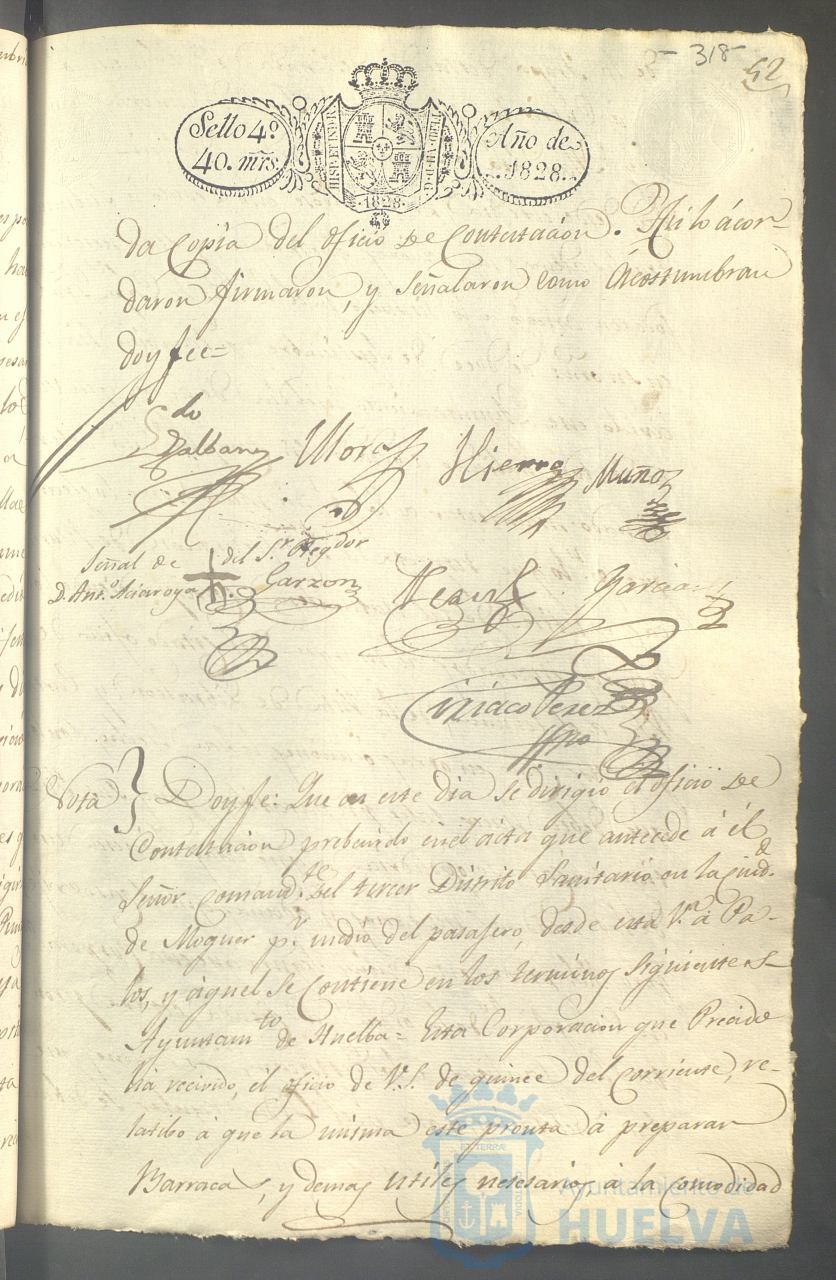 318
42
Sello 4º
40. mrs.
HISP. ET IND. R.
FERD. VII. D. G.
1828
Año de
1828.
da copia del oficio de Contestación. Asi lo ácor-
daron firmaron, y señalaron como Ácostumbran
doy fee=
Galban Mora Hierro Muñoz
Señal de + del Sr. Regdor
D. Antº. Garzon Garcia
Ciriaco Perez
Nota } Doy fe: Que en este dia se dirigio el oficio de
Contestacion prebenido en el acta que antecede á él
Señor Comandte. del tercer Distrito Sanitario en la Ciudd.
de Moguer pr. medio del pasagero, desde esta Vª. á Pa-
los, y áquel se contiene en los terminos siguientes-
Ayuntamto de Huelba= Esta Corporacion que Precido
há recivido, el oficio de V.S. de quince del corriente, re-
latibo á que la misma esté pronta á preparar
Barracas, y demas utiles nesesarios, á la comodidad
Ayuntamiento de
HUELVA